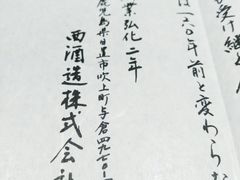 を受け継ぎ
は一六〇年前と変わらな
業弘化二年
鹿児島県日置市吹上町与倉四九七〇-
西酒造株式会社